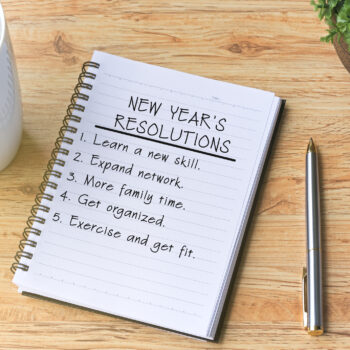 NEW YEAR'S
RESOLUTIONS
1. Learn a new skill.
2. Expand network.
3. More family time.
4. Get organized.
5. Exercise and get fit.